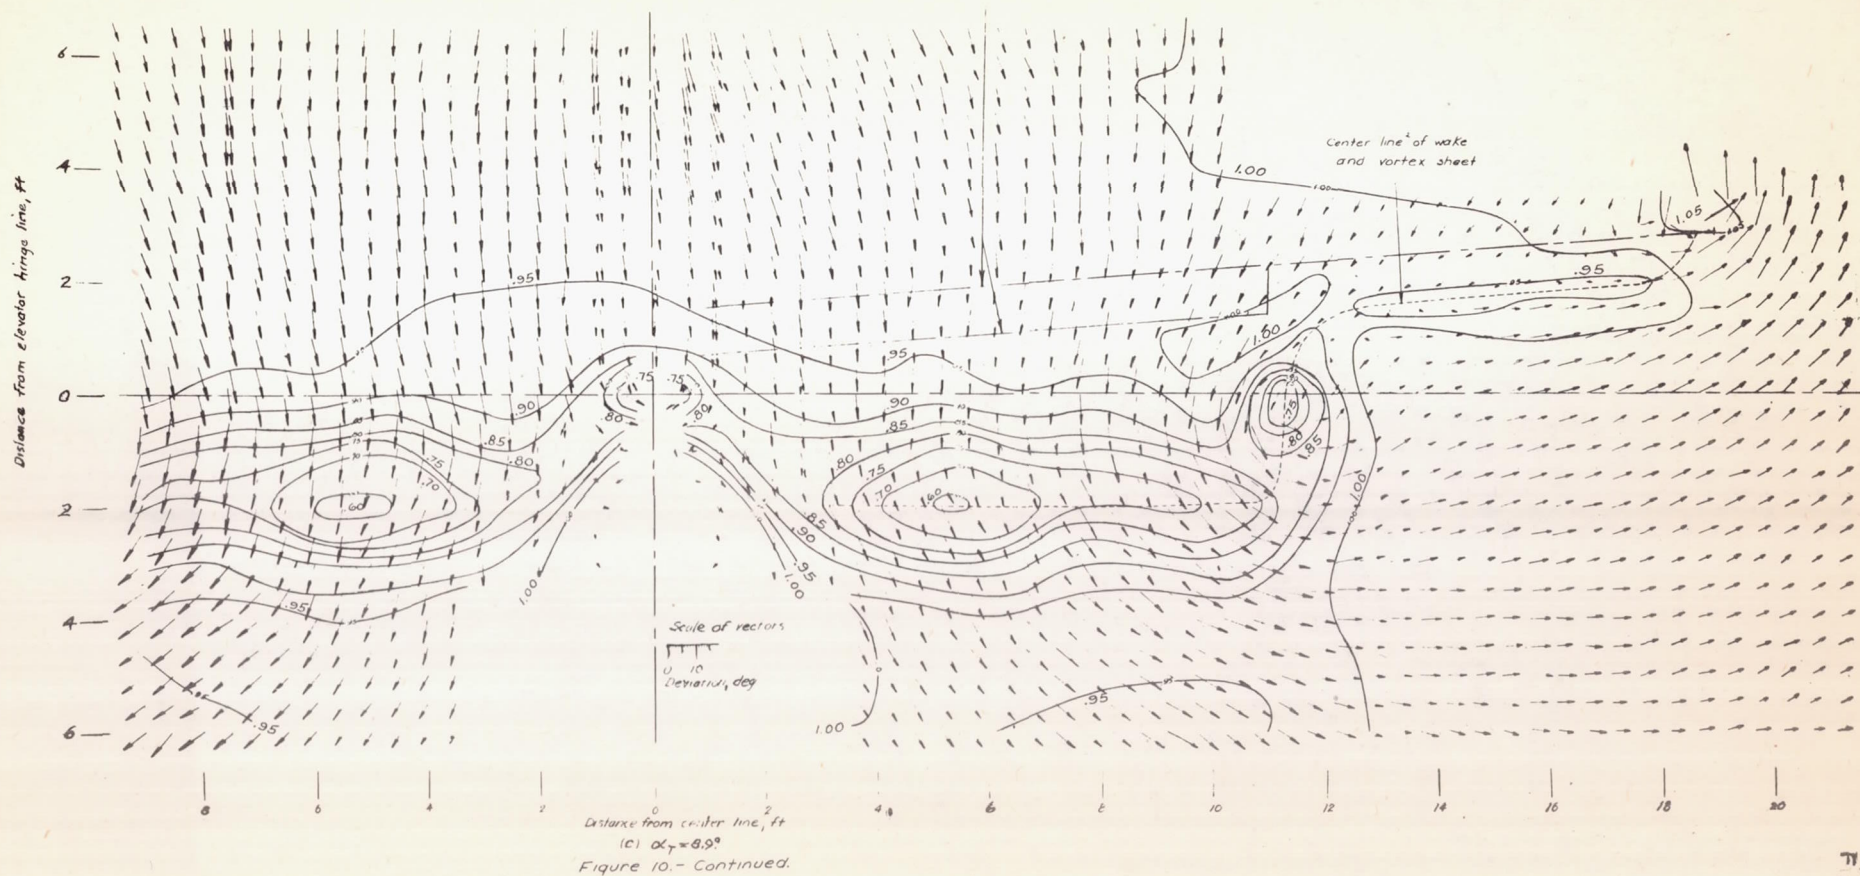 6
4
2
0
2
4
6
Distance from elevator hinge line, ft
Center line of wake
and vortex sheet
1.00
1.00
1.05
.95
.95
1.00
.95
.95
.75 .75
.80
.80
.90
.85
.80
.75
.70
.60
.90
.85
.80
.75
.70
.60
.85
.90
.95
1.00
1.00
.75
.80
.85
1.00
.95
.95
1.00
.95
Scale of vectors
0 10
Deviation, deg
8 6 4 2 0 2 4 6 8 10 12 14 16 18 20
Distance from center line, ft
(c) α_T = 8.9°
Figure 10.- Continued.